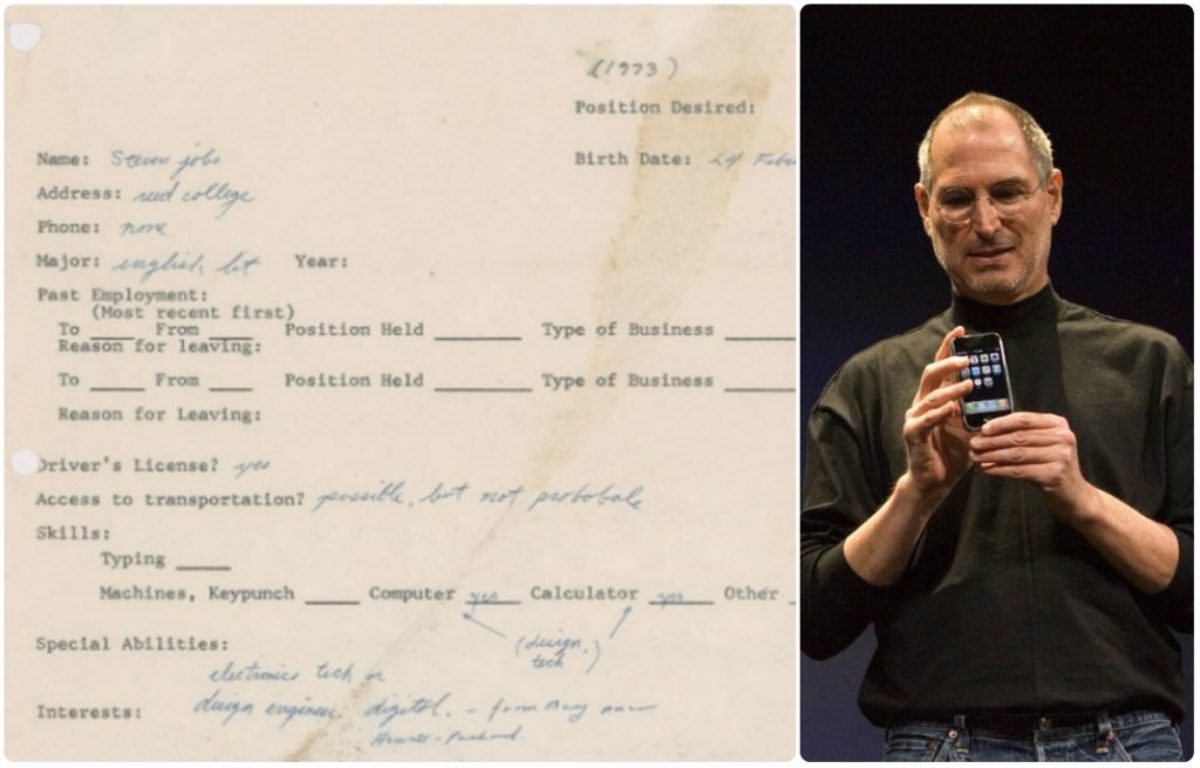 (1973)
Position Desired:
Name: Steven jobs Birth Date: 24 Febr
Address: reed college
Phone: none
Major: english lit Year:
Past Employment:
(Most recent first)
To ____ From ____ Position Held ________ Type of Business
Reason for leaving:
To _____ From ____ Position Held _________ Type of Business
Reason for Leaving:
Driver's License? yes
Access to transportation? possible, but not probable
Skills:
Typing _____
Machines, Keypunch _____ Computer yes Calculator yes Other
(design, tech)
Special Abilities:
electronics tech or
Interests: design engineer. digital. - from Bay
Hewett-Packard.